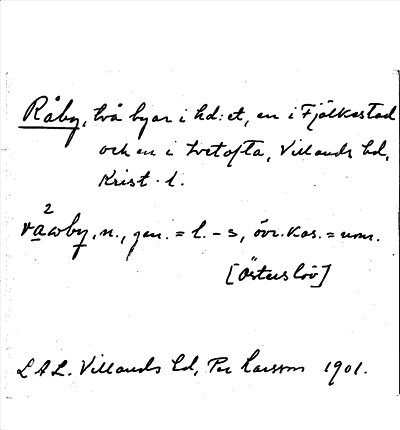 Råby, två byar i hd:et, en i Fjälkestad
och en i Ivetofta, Villands hd,
Krist. l.
2
rawby, n., gen. = l. - s, övr. kas. = nom.
[Österslöv]
L A L. Villands hd, Per Larsson 1901.